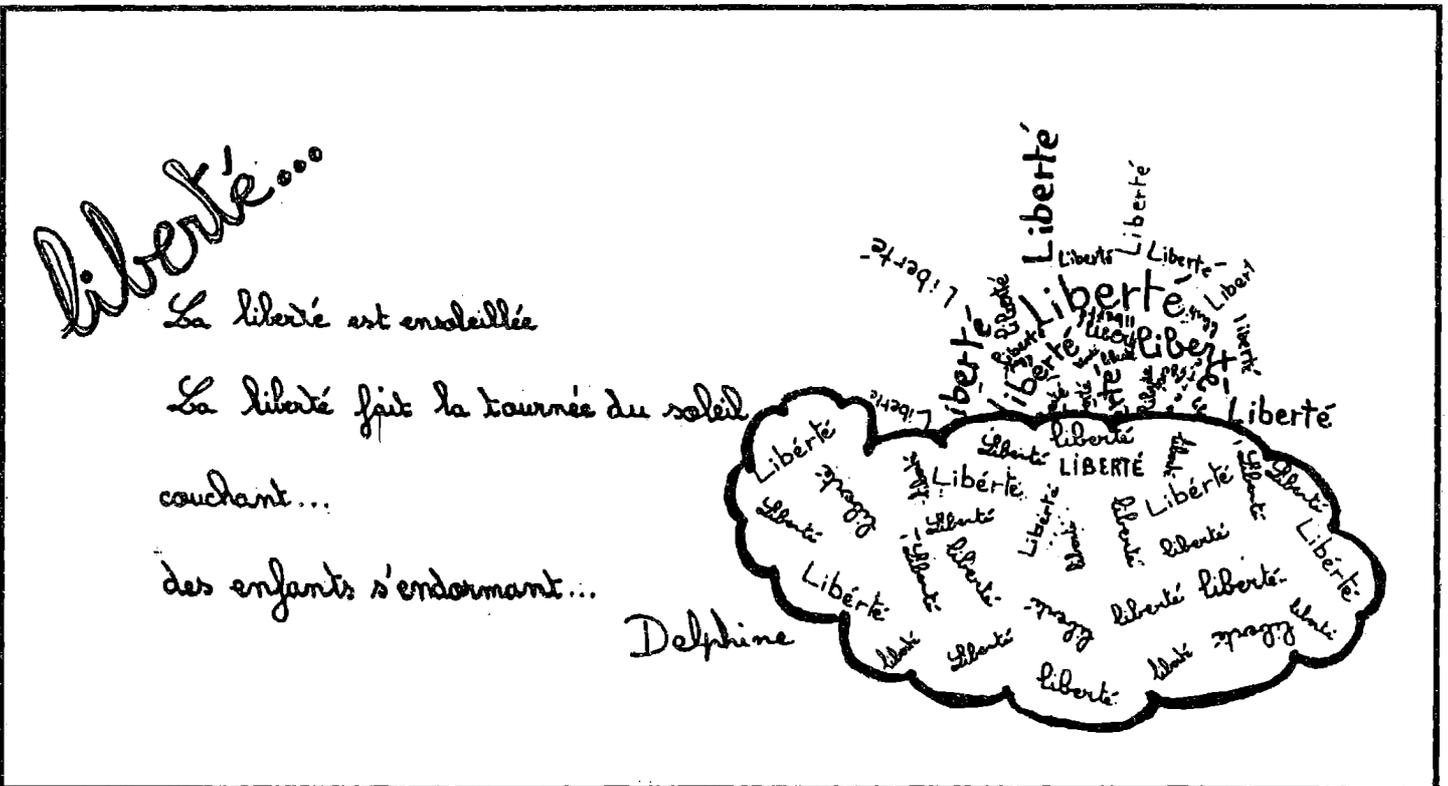 liberté...
La liberté est ensoleillée
La liberté fait la tournée du soleil
couchant...
des enfants s'endormant...
Delphine
Liberté
Liberté
Liberté
Liberté
Liberté-
Libert
Liberté
Liberté
Liberté
liberté
Liberté
liberté
Liberté
Liberté
Liberté
Libérté
liberté
Liberté
LIBERTÉ
Libérté
Libérté
Liberté
Liberté
Liberté
Liberté
liberté
Liberté
liberté
Liberté
liberté
Libérté
Libérté
liberté
liberté-
liberté
liberté
liberté
Liberté
liberté
liberté
liberté